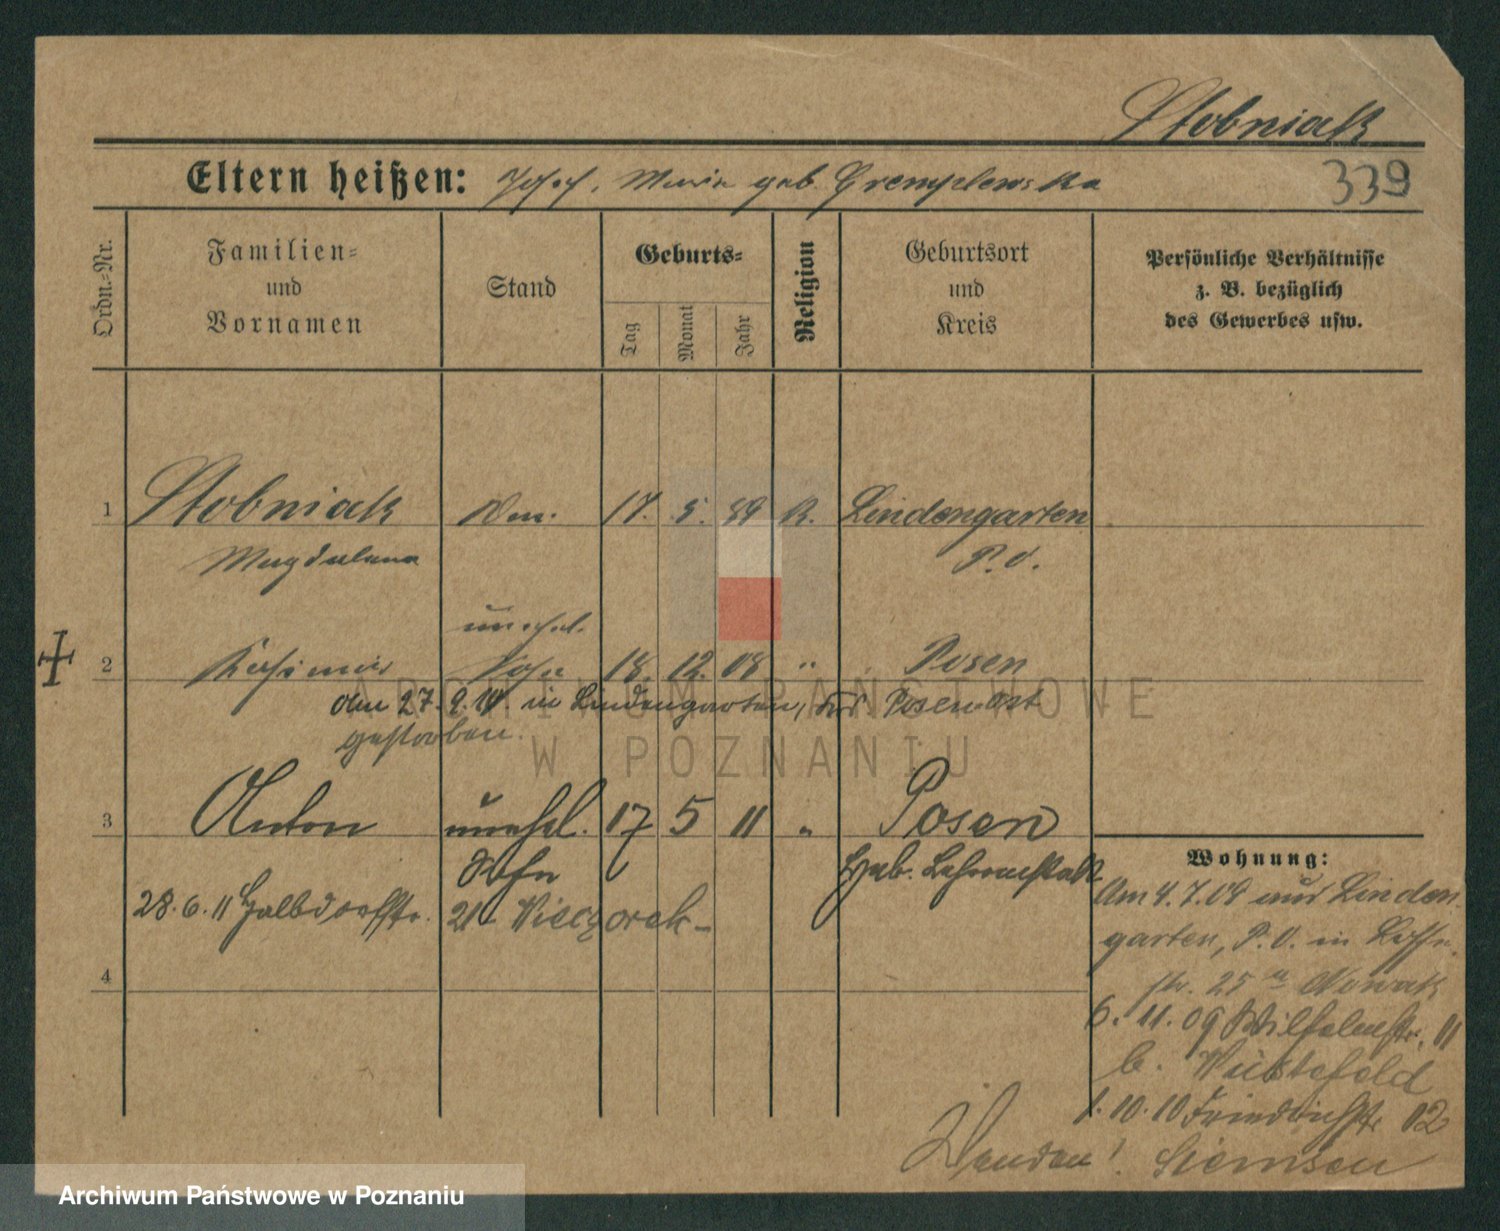 Stobniak
Eltern heißen: Josef, Maria geb. Gremplewska
339
Ordn.-Nr.
Familien-
und
Vornamen
Stand
Geburts-
Tag
Monat
Jahr
Religion
Geburtsort
und
Kreis
Persönliche Verhältnisse
z. B. bezüglich
des Gewerbes usw.
1 Stobniak 17. 5. 89 K. Lindengarten
Magdalena P. O.
unehel.
2 Kasimir Sohn 18. 12. 08 " Posen
am 27. 9. 10. in Lindengarten, Krs. Posen Ost
gestorben.
3 Anton unehel. 17 5 11 " Posen
Sohn Heb. Lehranstalt
28. 6. 11 Halbdorfstr. 21 Vieczorek-
4
Wohnung:
Am 4. 7. 09 aus Linden
garten, P. O. in
str. 25 Nowak
6. 11. 09 Wilhelmstr. 11
b. Wüstefeld
1. 10. 10 Friedrichstr 12
Siemsen
Wenden!
ARCHIWUM PAŃSTWOWE
W POZNANIU
Archiwum Państwowe w Poznaniu